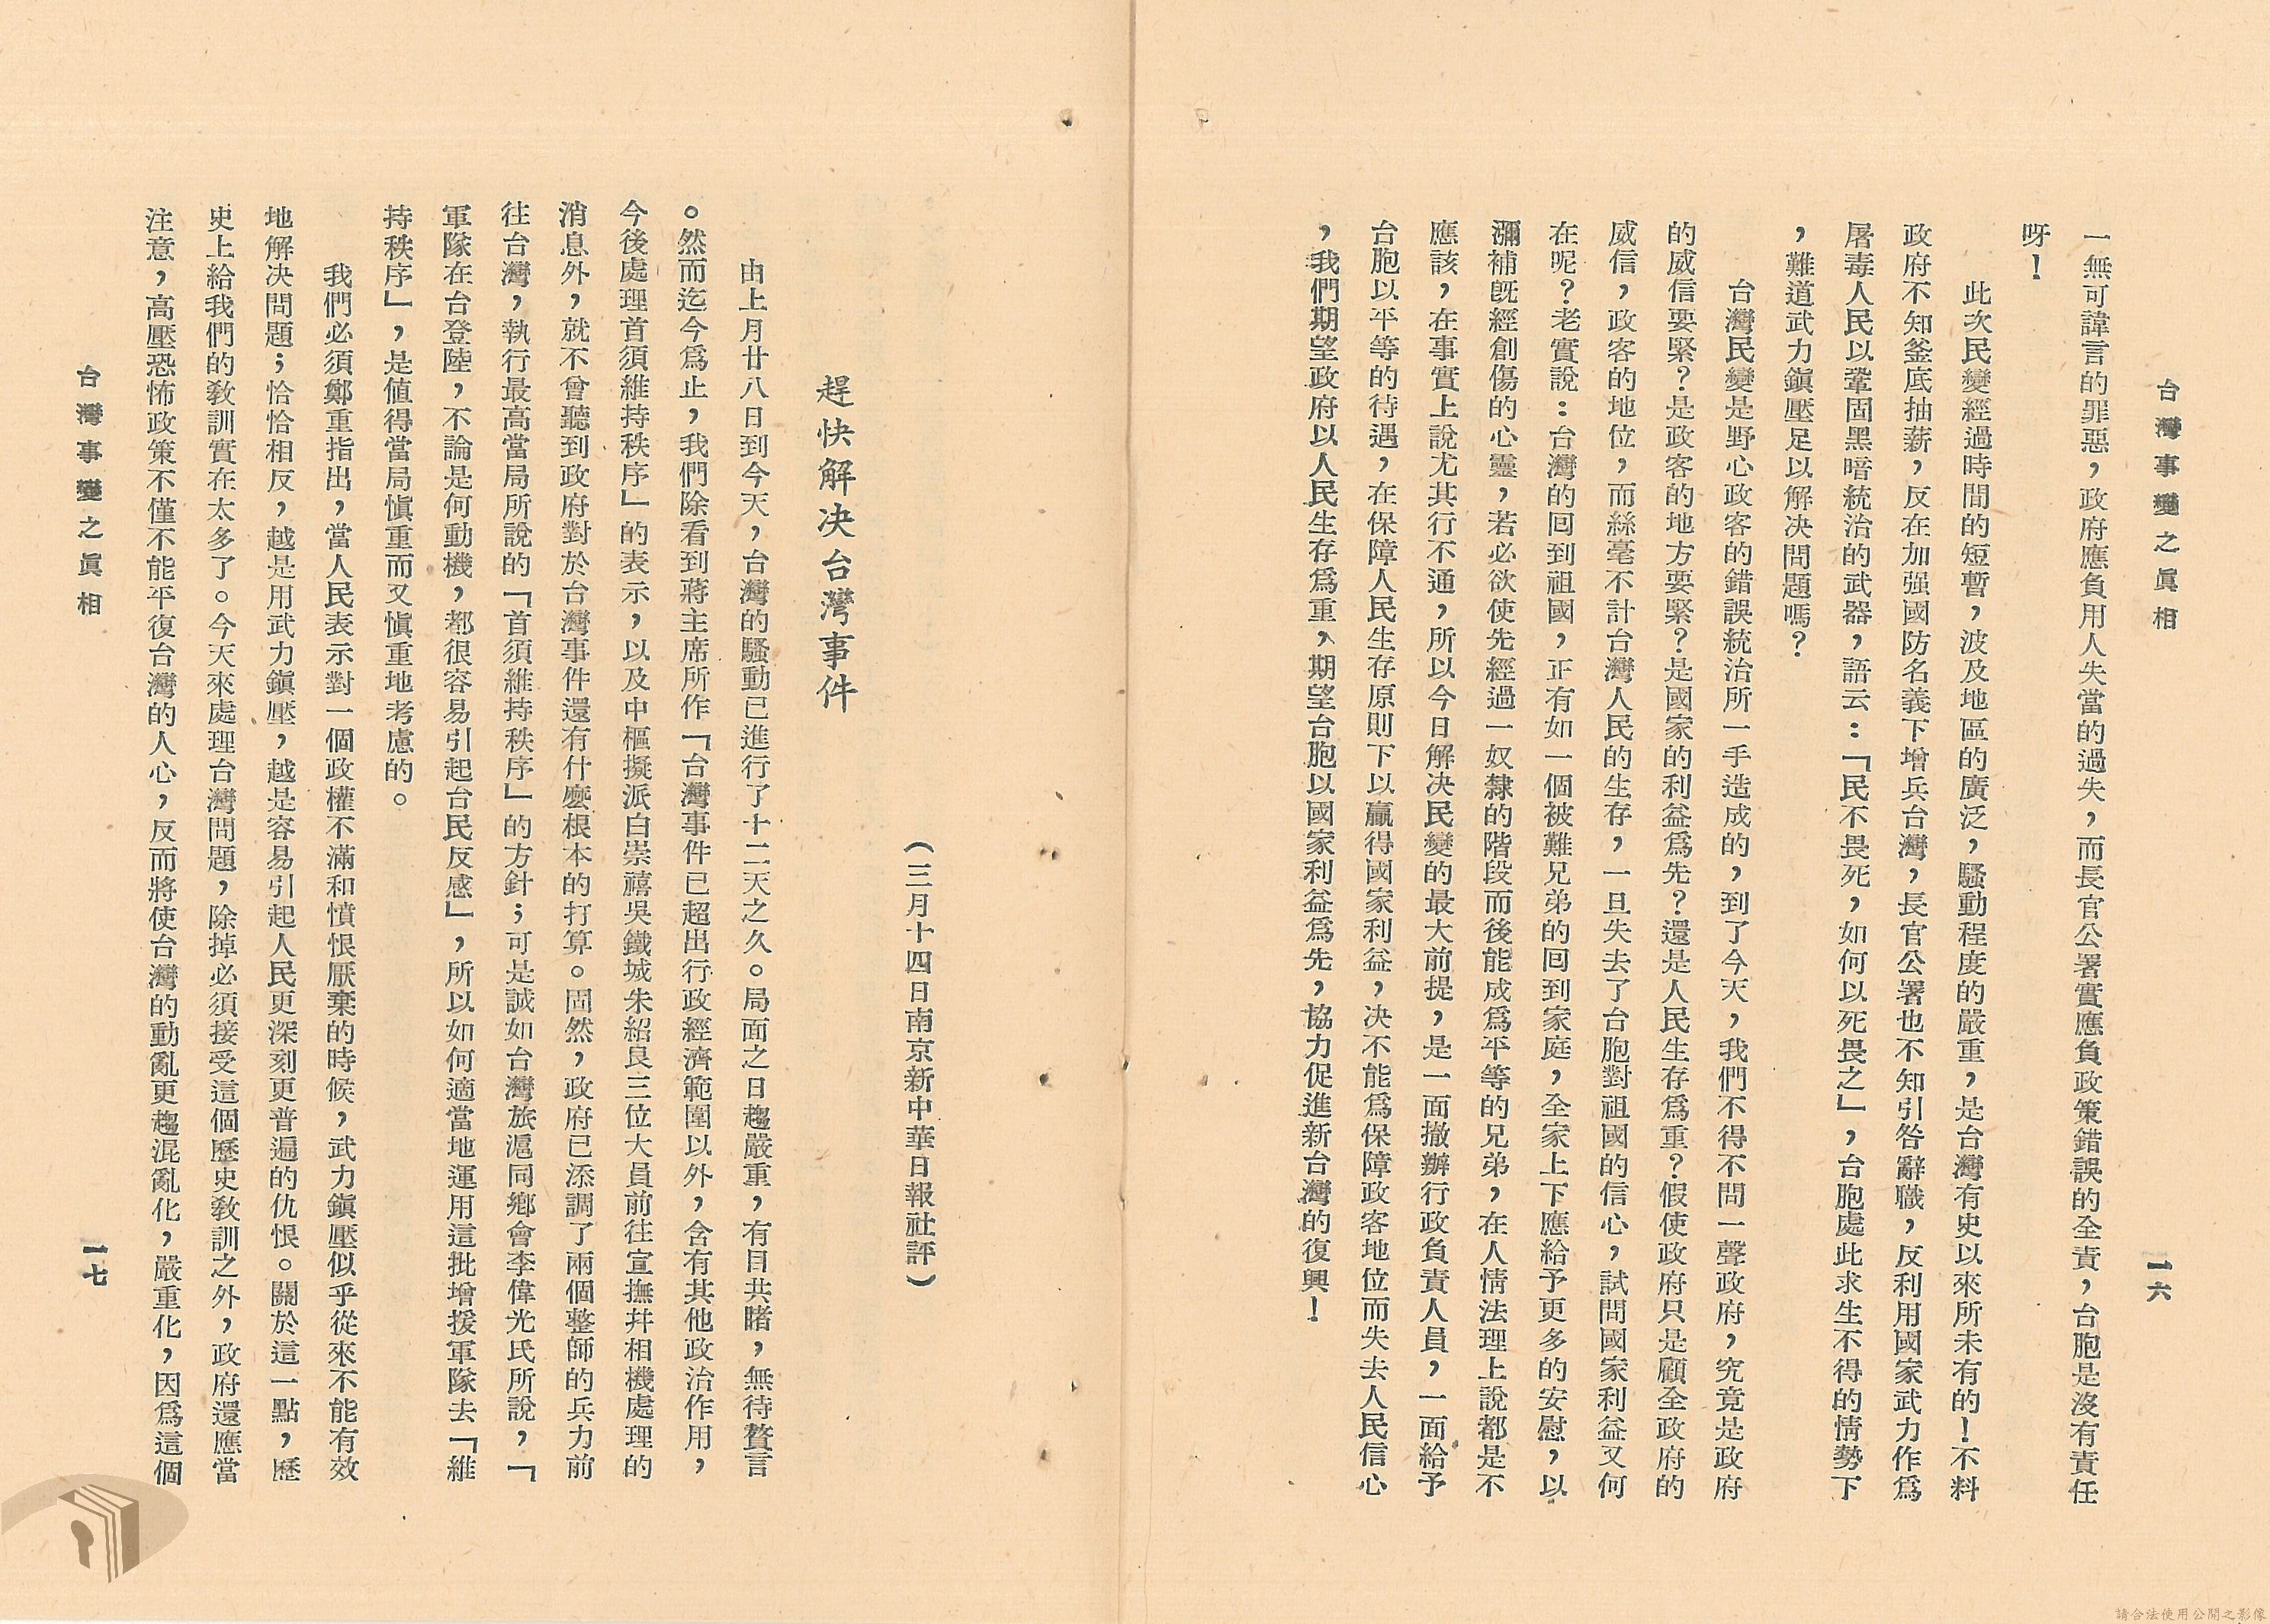 台灣事變之眞相
一六
一無可諱言的罪惡，政府應負用人失當的過失，而長官公署實應負政策錯誤的全責，台胞是沒有責任
呀！
此次民變經過時間的短暫，波及地區的廣泛，騷動程度的嚴重，是台灣有史以來所未有的！不料
政府不知釜底抽薪，反在加强國防名義下增兵台灣，長官公署也不知引咎辭職，反利用國家武力作爲
屠毒人民以鞏固黑暗統治的武器，語云：「民不畏死，如何以死畏之」，台胞處此求生不得的情勢下
，難道武力鎭壓足以解决問題嗎？
台灣民變是野心政客的錯誤統治所一手造成的，到了今天，我們不得不問一聲政府，究竟是政府
的威信要緊？是政客的地方要緊？是國家的利益爲先？還是人民生存爲重？假使政府只是顧全政府的
威信，政客的地位，而絲毫不計台灣人民的生存，一旦失去了台胞對祖國的信心，試問國家利益又何
在呢？老實說：台灣的回到祖國，正有如一個被難兄弟的回到家庭，全家上下應給予更多的安慰，以
瀰補旣經創傷的心靈，若必欲使先經過一奴隸的階段而後能成爲平等的兄弟，在人情法理上說都是不
應該，在事實上說尤其行不通，所以今日解决民變的最大前提，是一面撤辦行政負責人員，一面給予
台胞以平等的待遇，在保障人民生存原則下以贏得國家利益，决不能爲保障政客地位而失去人民信心
，我們期望政府以人民生存爲重，期望台胞以國家利益爲先，協力促進新台灣的復興！
（三月十四日南京新中華日報社評）
趕快解决台灣事件
由上月廿八日到今天，台灣的騷動已進行了十二天之久。局面之日趨嚴重，有目共睹，無待贅言
。然而迄今爲止，我們除看到蔣主席所作「台灣事件已超出行政經濟範圍以外，含有其他政治作用，
今後處理首須維持秩序」的表示，以及中樞擬派白崇禧吳鐵城朱紹良三位大員前往宣撫幷相機處理的
消息外，就不曾聽到政府對於台灣事件還有什麼根本的打算。固然，政府已添調了兩個整師的兵力前
往台灣，執行最高當局所說的「首須維持秩序」的方針；可是誠如台灣旅滬同鄉會李偉光氏所說，「
軍隊在台登陸，不論是何動機，都很容易引起台民反感」，所以如何適當地運用這批增援軍隊去「維
持秩序」，是値得當局愼重而又愼重地考慮的。
我們必須鄭重指出，當人民表示對一個政權不滿和憤恨厭棄的時候，武力鎭壓似乎從來不能有效
地解决問題；恰恰相反，越是用武力鎭壓，越是容易引起人民更深刻更普遍的仇恨。關於這一點，歷
史上給我們的敎訓實在太多了。今天來處理台灣問題，除掉必須接受這個歷史敎訓之外，政府還應當
注意，高壓恐怖政策不僅不能平復台灣的人心，反而將使台灣的動亂更趨混亂化，嚴重化，因爲這個
台灣事變之眞相
一七
請合法使用公開之影像